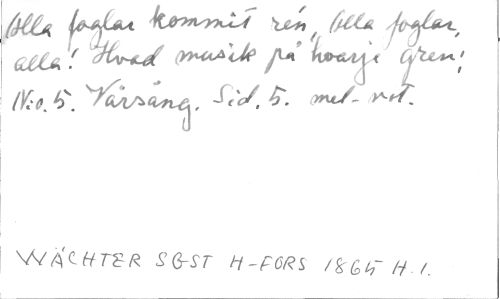 Alla foglar kommit rén, Alla foglar,
alla! Hvad musik på hvarje gren!
N:o. 5. Vårsång. Sid. 5. mel-not.
WÄCHTER SGST H-FORS 1865 H.1.